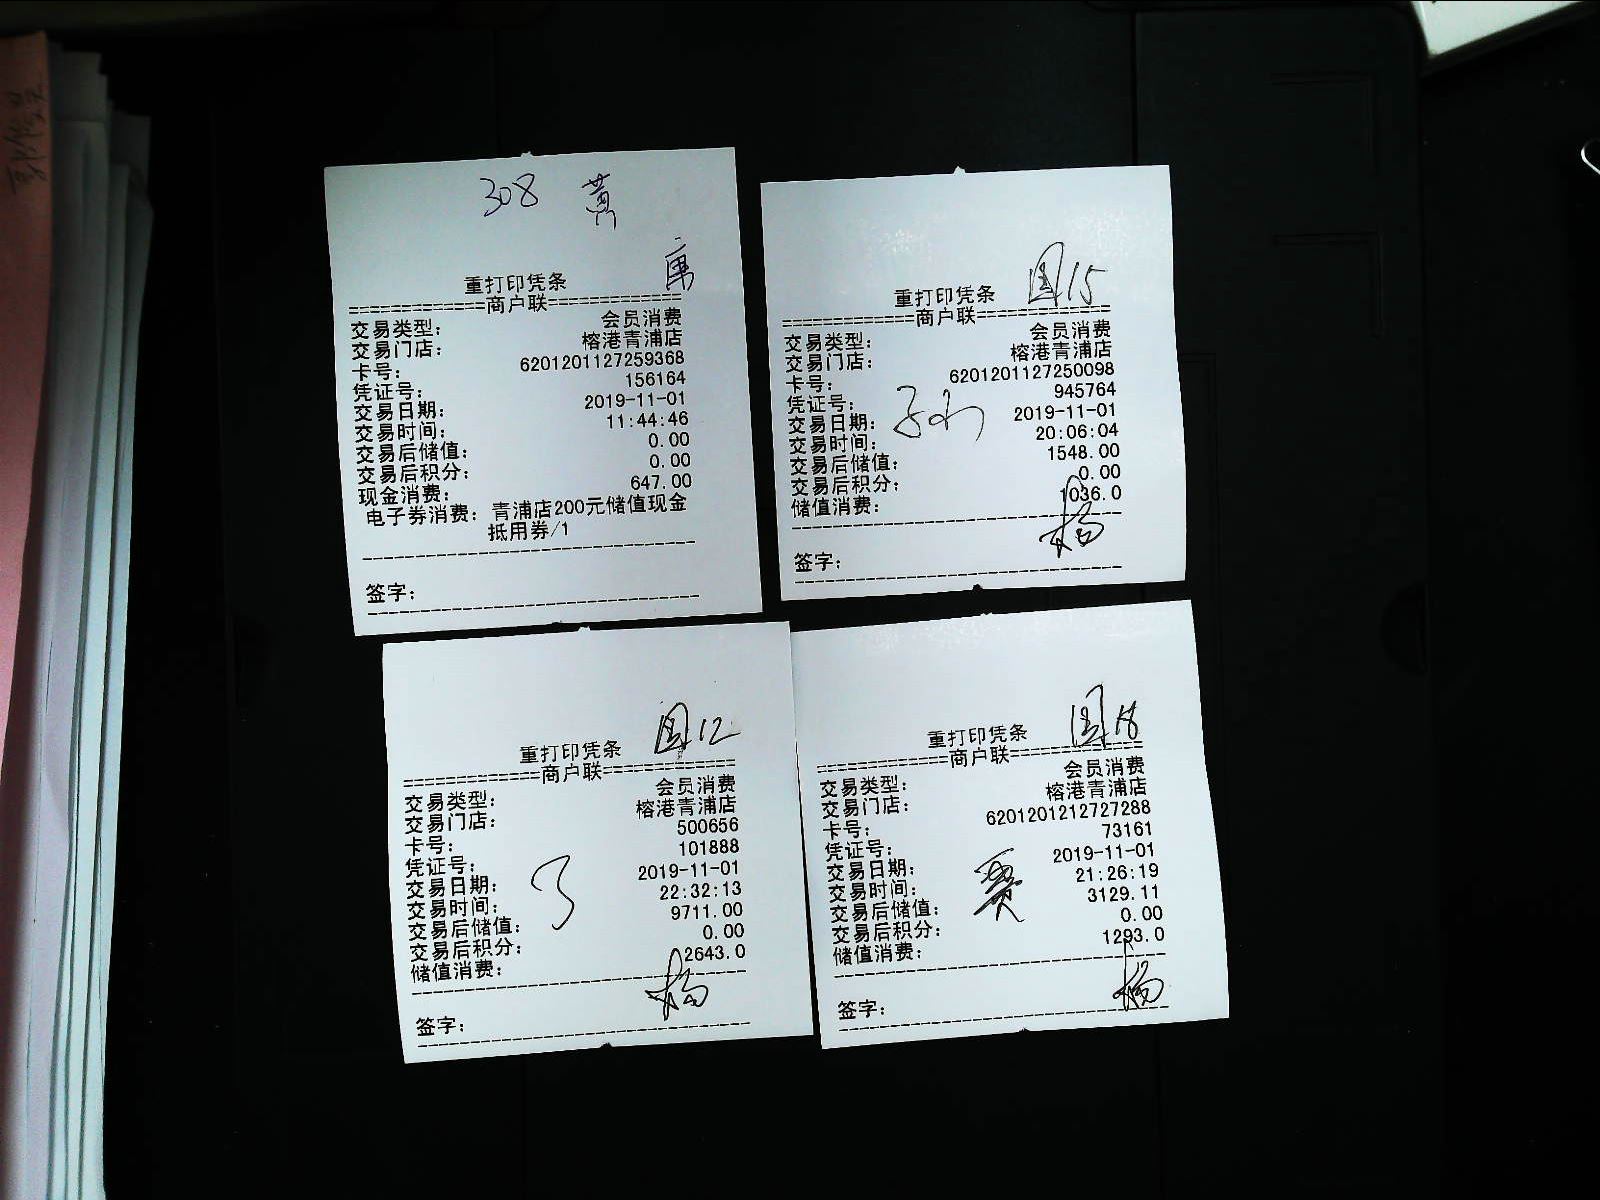 308 黄
重打印凭条
==============商户联==============
交易类型： 会员消费
交易门店： 榕港青浦店
卡号： 6201201127259368
凭证号： 156164
交易日期： 2019-11-01
交易时间： 11:44:46
交易后储值： 0.00
交易后积分： 0.00
现金消费： 647.00
电子券消费：青浦店200元储值现金
抵用券/1
签字：
重打印凭条 图15
==============商户联==============
交易类型： 会员消费
交易门店： 榕港青浦店
卡号： 6201201127250098
凭证号： 945764
交易日期： 2019-11-01
交易时间： 20:06:04
交易后储值： 1548.00
交易后积分： 0.00
储值消费： 1036.0
杨
签字：
重打印凭条 图12
==============商户联==============
交易类型： 会员消费
交易门店： 榕港青浦店
卡号： 500656
凭证号： 101888
交易日期： 2019-11-01
交易时间： 22:32:13
交易后储值： 9711.00
交易后积分： 0.00
储值消费： 2643.0
杨
签字：
重打印凭条 图18
==============商户联==============
交易类型： 会员消费
交易门店： 榕港青浦店
卡号： 6201201212727288
凭证号： 73161
交易日期： 2019-11-01
交易时间： 21:26:19
交易后储值： 3129.11
交易后积分： 0.00
储值消费： 1293.0
杨
签字：